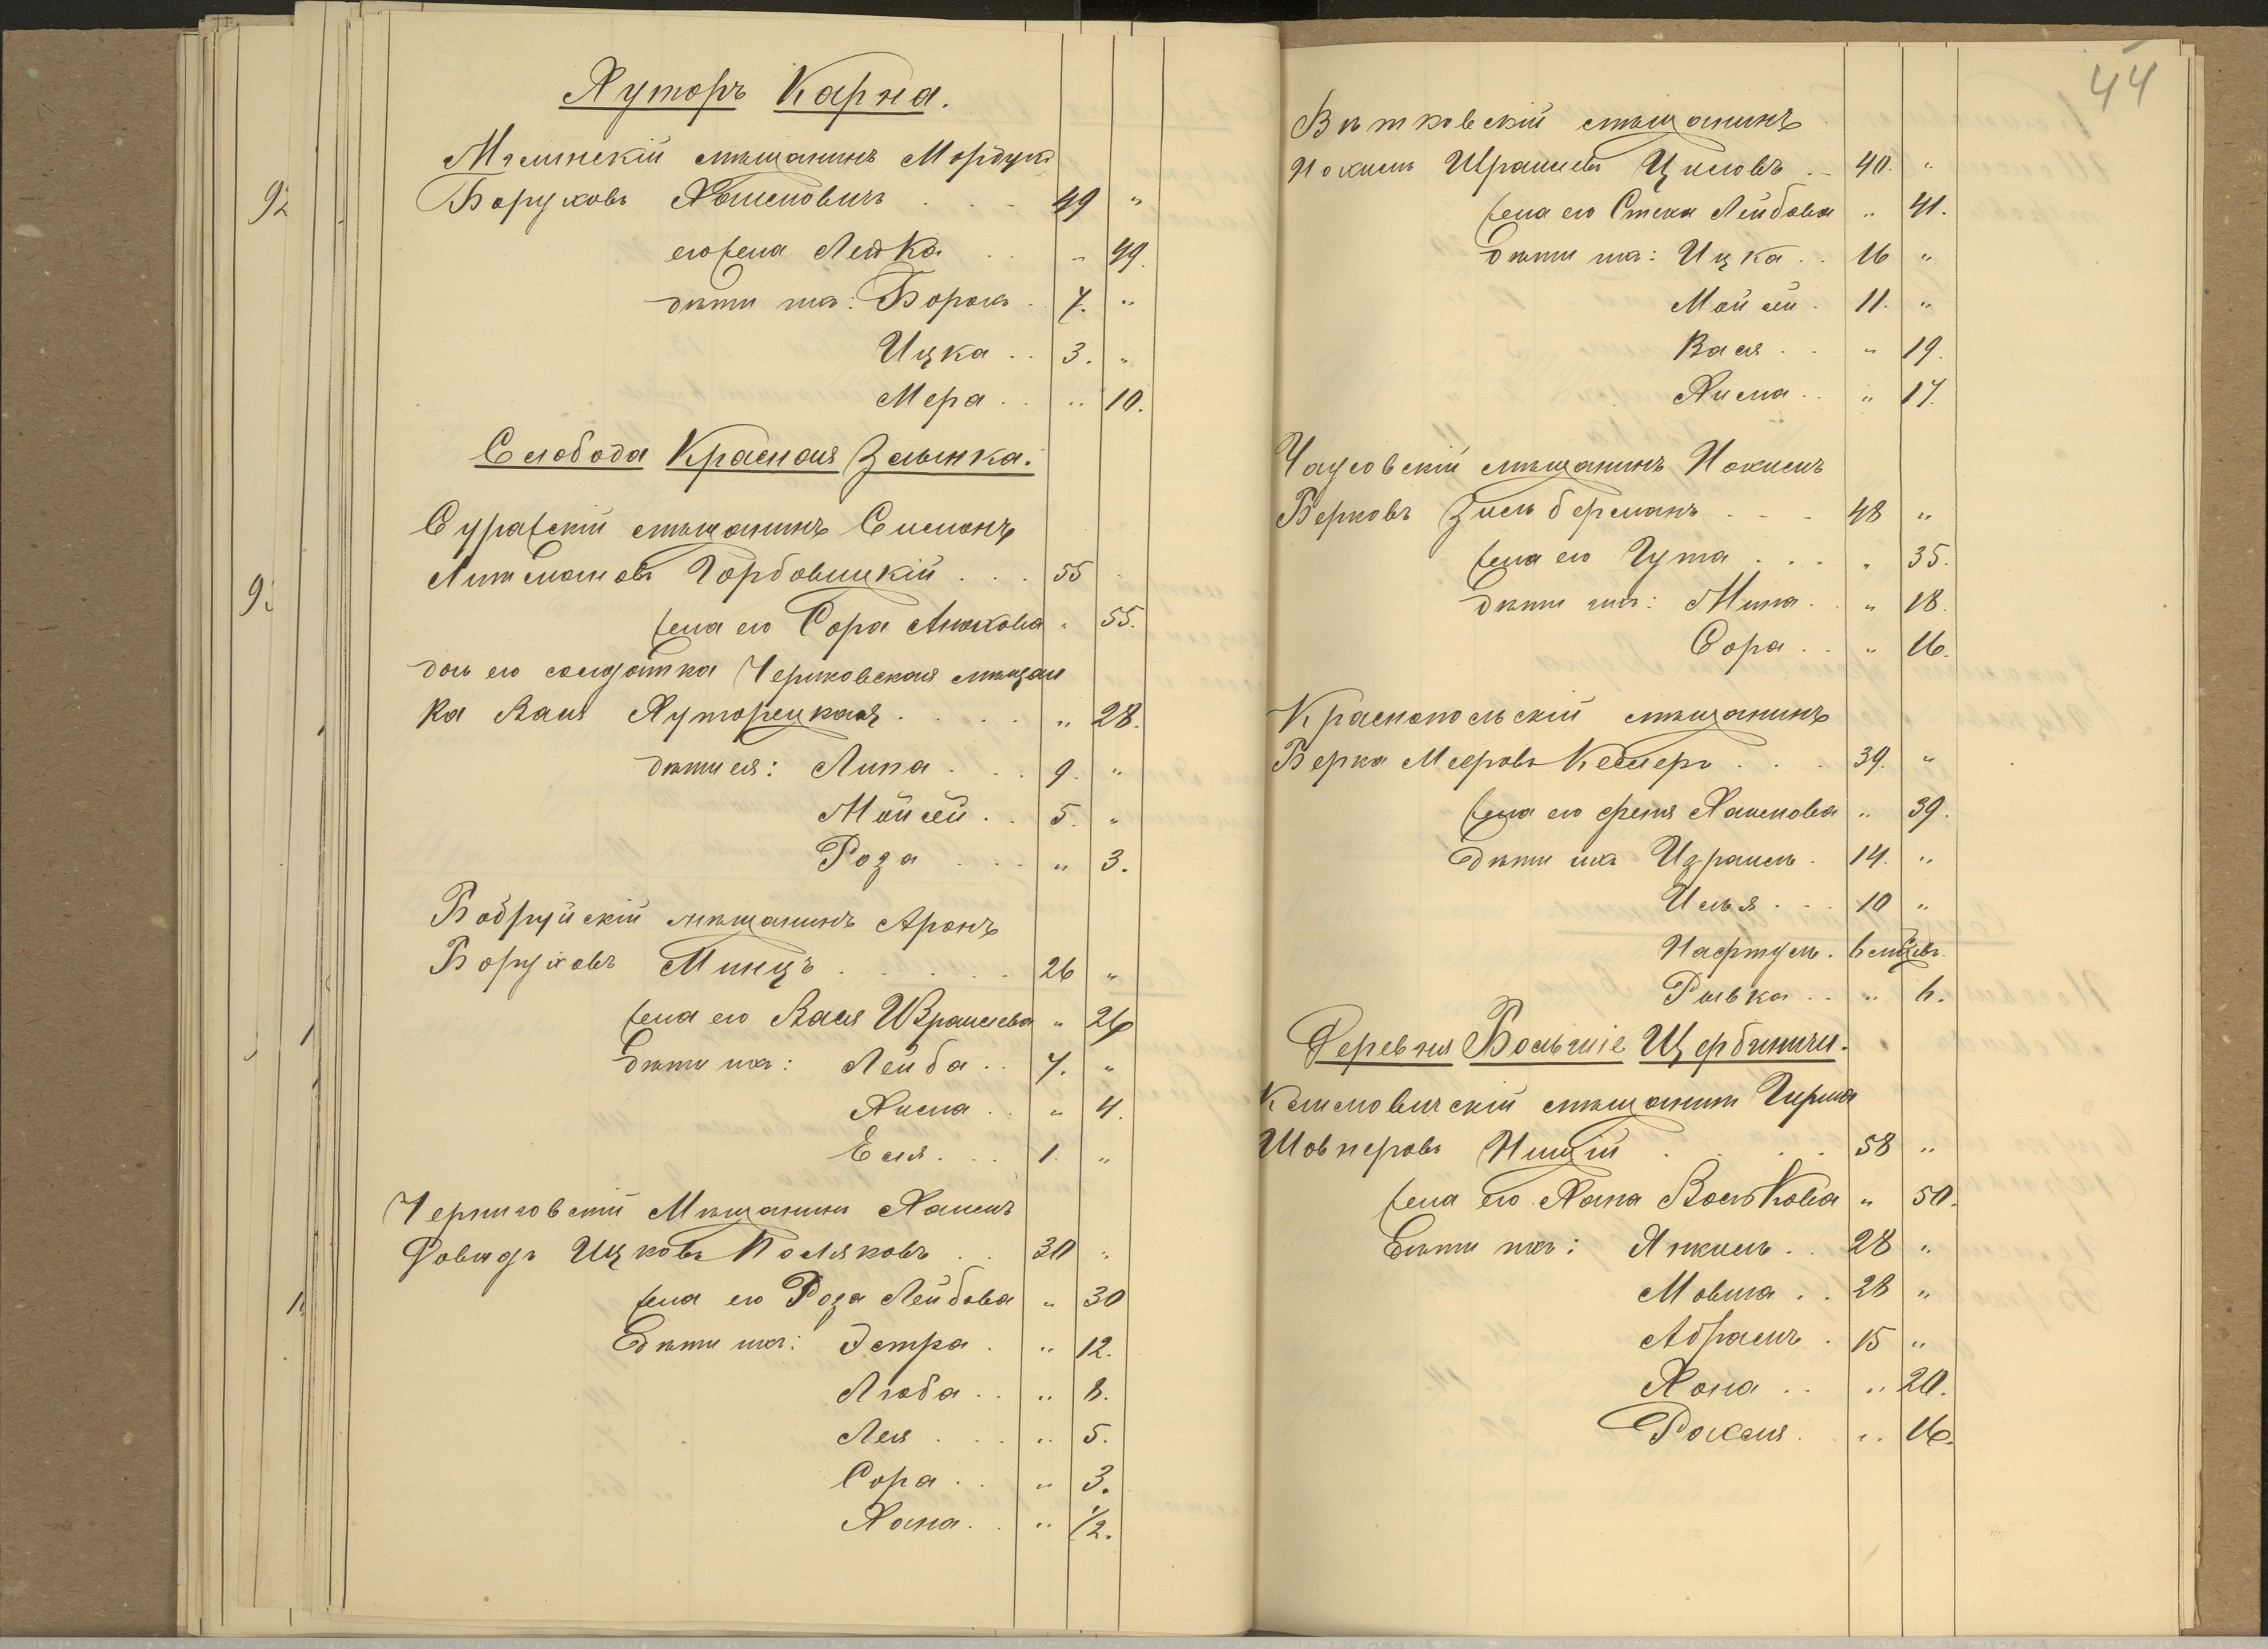 Хуторъ Карна.
Мглинскій мѣщанинъ Мордухъ
92
Боруховъ 49 "
его жена Лейка . . " 49.
дѣти ихъ: Борохъ . 7. "
Ицка . . 3. "
Мера . . " 10.
Слобода Красная Залынка.
Суражскій мѣщанинъ Симонъ
Горбовицкій . . . 55
жена его Сора " 55.
дочь его солдатка Чериковская мѣщан
ка Хася Хуторецкая . . . . " 28.
дѣти ея: Липа . . . 9. "
Мойсей . . 5. "
Роза . . . " 3.
Бобруйскій мѣщанинъ Аронъ
Боруховъ Минцъ . . . . . 26 "
жена его Хася Израилева " 26
Дѣти ихъ: Лейба . . 7. "
Хима . . " 4.
Еля . . . 1. "
Черниговскій Мѣщанинъ Хаимъ
Довидъ Ицковъ Поляковъ . . 30 "
жена его Роза Лейбова " 30
Дѣти ихъ: Эстра . " 12.
Люба . . " 8.
Лея . . . " 5.
Сора . . " 3.
Хана . . " 1/2.
44
Вѣтковскій мѣщанинъ
Иохиль Израилевъ . . 40. "
жена его Лейбова " 41.
Дѣти ихъ: Ицка . . 16 "
Мойсей . 11. "
Хася . . " 19.
Хима . . " 17.
Чаусовскій мѣщанинъ Иохиль
Берковъ Зильберманъ . . . 48 "
жена его Гута . . . " 35.
Дѣти ихъ: Мина . " 18.
Сора . . " 16.
Краснопольскій мѣщанинъ
Берка Мееровъ . . . 39. "
жена его Фейга Хаимова " 39.
Дѣти ихъ Израиль . 14. "
Илья . . . 10 "
Нафтуль . 6 мѣсяц.
Ривка . . " 6.
Деревня Большіе Щербиничи.
Климовичскій мѣщанинъ Гирша
Шовнеровъ . . . . 58 "
жена его Хана Волькова " 50.
Дѣти ихъ: Янкиль . . 28 "
Мовша . . 28 "
Абрамъ . 15 "
Хона . . " 20.
Рохля . " 16.